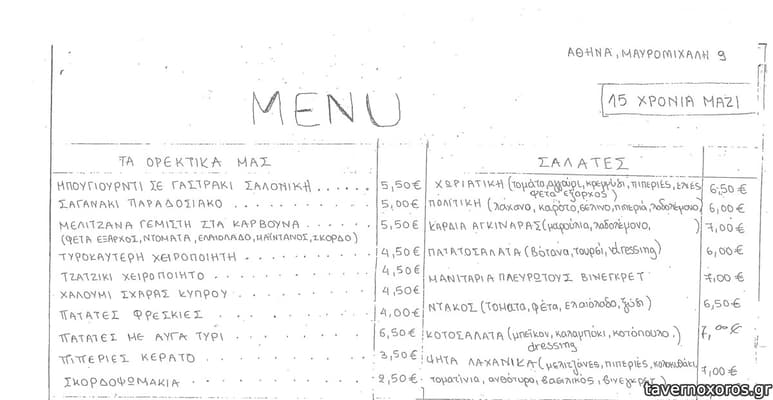 ΑΘΗΝΑ, ΜΑΥΡΟΜΙΧΑΛΗ 9
MENU
15 ΧΡΟΝΙΑ ΜΑΖΙ
ΤΑ ΟΡΕΚΤΙΚΑ ΜΑΣ
ΜΠΟΥΓΙΟΥΡΝΤΙ ΣΕ ΓΑΣΤΡΑΚΙ ΣΑΛΟΝΙΚΗ ...... 5,50€
ΣΑΓΑΝΑΚΙ ΠΑΡΑΔΟΣΙΑΚΟ ............ 5,00€
ΜΕΛΙΤΖΑΝΑ ΓΕΜΙΣΤΗ ΣΤΑ ΚΑΡΒΟΥΝΑ .... 5,50€
(ΦΕΤΑ ΕΞΑΡΧΟΣ, ΝΤΟΜΑΤΑ, ΕΛΑΙΟΛΑΔΟ, ΜΑΪΝΤΑΝΟΣ, ΣΚΟΡΔΟ)
ΤΥΡΟΚΑΥΤΕΡΗ ΧΕΙΡΟΠΟΙΗΤΗ ........ 4,50€
ΤΖΑΤΖΙΚΙ ΧΕΙΡΟΠΟΙΗΤΟ ........ 4,50€
ΧΑΛΟΥΜΙ ΣΧΑΡΑΣ ΚΥΠΡΟΥ ........ 4,50€
ΠΑΤΑΤΕΣ ΦΡΕΣΚΙΕΣ ........ 4,00€
ΠΑΤΑΤΕΣ ΜΕ ΑΥΓΑ ΤΥΡΙ ........ 6,50€
ΠΙΠΕΡΙΕΣ ΚΕΡΑΤΟ ........ 3,50€
ΣΚΟΡΔΟΨΩΜΑΚΙΑ ........ 2,50€
ΣΑΛΑΤΕΣ
ΧΩΡΙΑΤΙΚΗ (τομάτα, αγγούρι, κρεμμύδι, πιπεριές, ελιές 6,50€
φέτα εξαρχος)
ΠΟΛΙΤΙΚΗ (λάχανο, καρότο, σέλινο, πιπεριά, λαδολέμονο) 6,00€
ΚΑΡΔΙΑ ΑΓΚΙΝΑΡΑΣ (μαρούλια, λαδολέμονο, ) 7,00€
ΠΑΤΑΤΟΣΑΛΑΤΑ (βότανα, τουρσί, dressing) 6,00€
ΜΑΝΙΤΑΡΙΑ ΠΛΕΥΡΩΤΟΥΣ ΒΙΝΕΓΚΡΕΤ 7,00€
ΝΤΑΚΟΣ (τοματα, φέτα, ελαιόλαδο, ξύδι) 6,50€
ΚΟΤΟΣΑΛΑΤΑ (μπέικον, καλαμπόκι, κοτόπουλο 7,00€
dressing)
ΨΗΤΑ ΛΑΧΑΝΙΚΑ (μελιτζάνες, πιπεριές, κολοκυθάκι 7,00€
τοματίνια, ανθότυρο, βασιλικός, βινεγκρετ)
tavernoxoros.gr